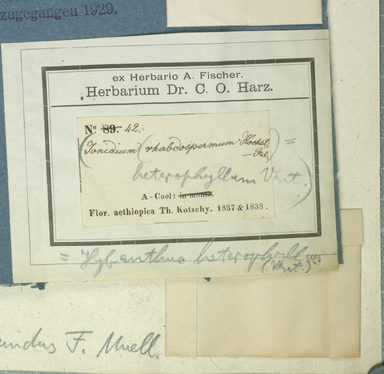 zugegangen 1920.
ex Herbario A. Fischer.
Herbarium Dr. C. O. Harz.
No 89. 42.
Jonidium (rhabdospermum Hochst. =
heterophyllum Vent.)
A-Cool: in monte.
Flor. aethiopica Th. Kotschy. 1837 & 1838.
= Hybanthus heterophyll.
(Vent.)
F. Muell.